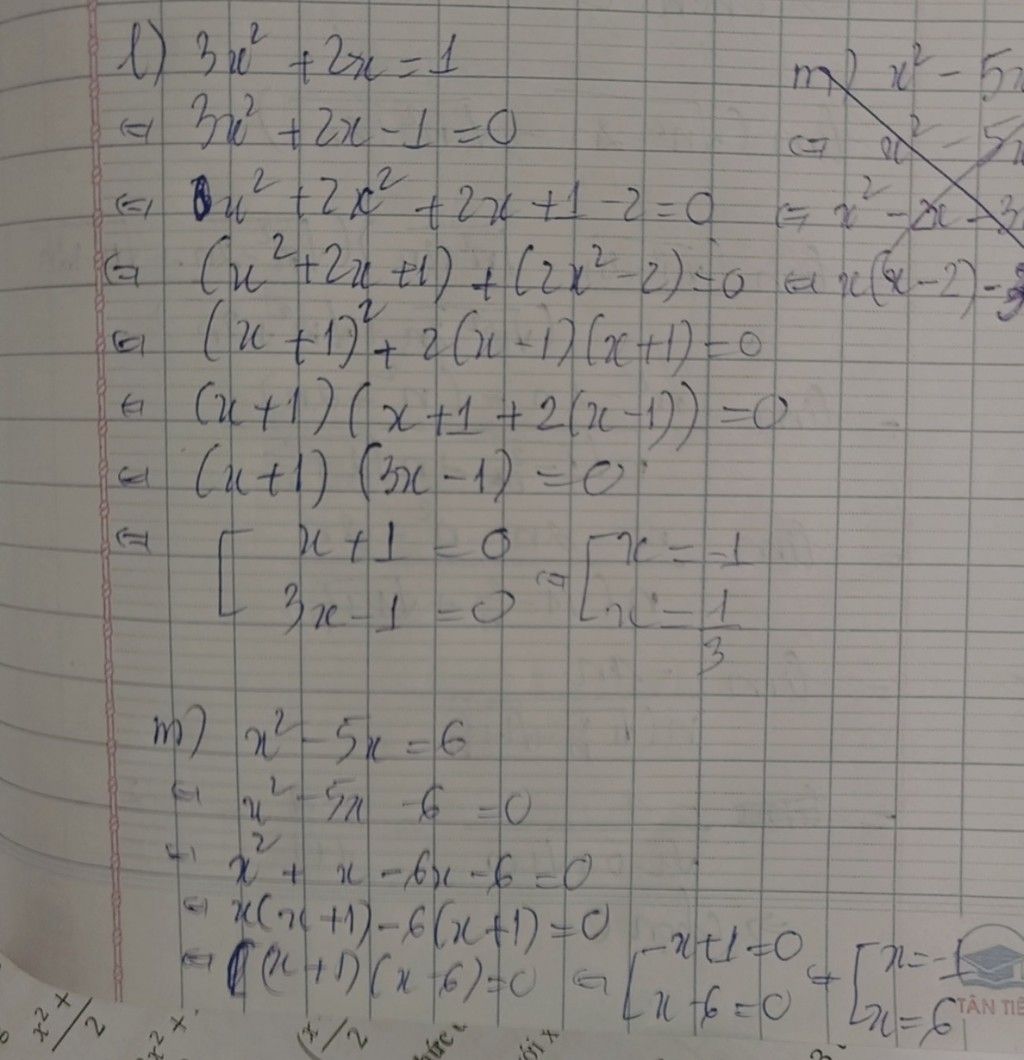 l) 3x² + 2x = 1
⇔ 3x² + 2x - 1 = 0
⇔ x² + 2x² + 2x + 1 - 2 = 0
⇔ (x² + 2x + 1) + (2x² - 2) = 0
⇔ (x + 1)² + 2(x - 1)(x + 1) = 0
⇔ (x + 1)(x + 1 + 2(x - 1)) = 0
⇔ (x + 1)(3x - 1) = 0
⇔ [ x + 1 = 0 ⇔ [ x = -1
3x - 1 = 0 x = 1/3
m) x² - 5x
⇔ x² - 5x
⇔ x² - 2x - 3
⇔ x(x - 2) -
m) x² - 5x = 6
⇔ x² - 5x - 6 = 0
⇔ x² + x - 6x - 6 = 0
⇔ x(x + 1) - 6(x + 1) = 0
⇔ (x + 1)(x - 6) = 0 ⇔ [ x + 1 = 0 ⇔ [ x = -1
x - 6 = 0 x = 6
TÂN TIẾ
x² +
2
x² +
(x
2
với x